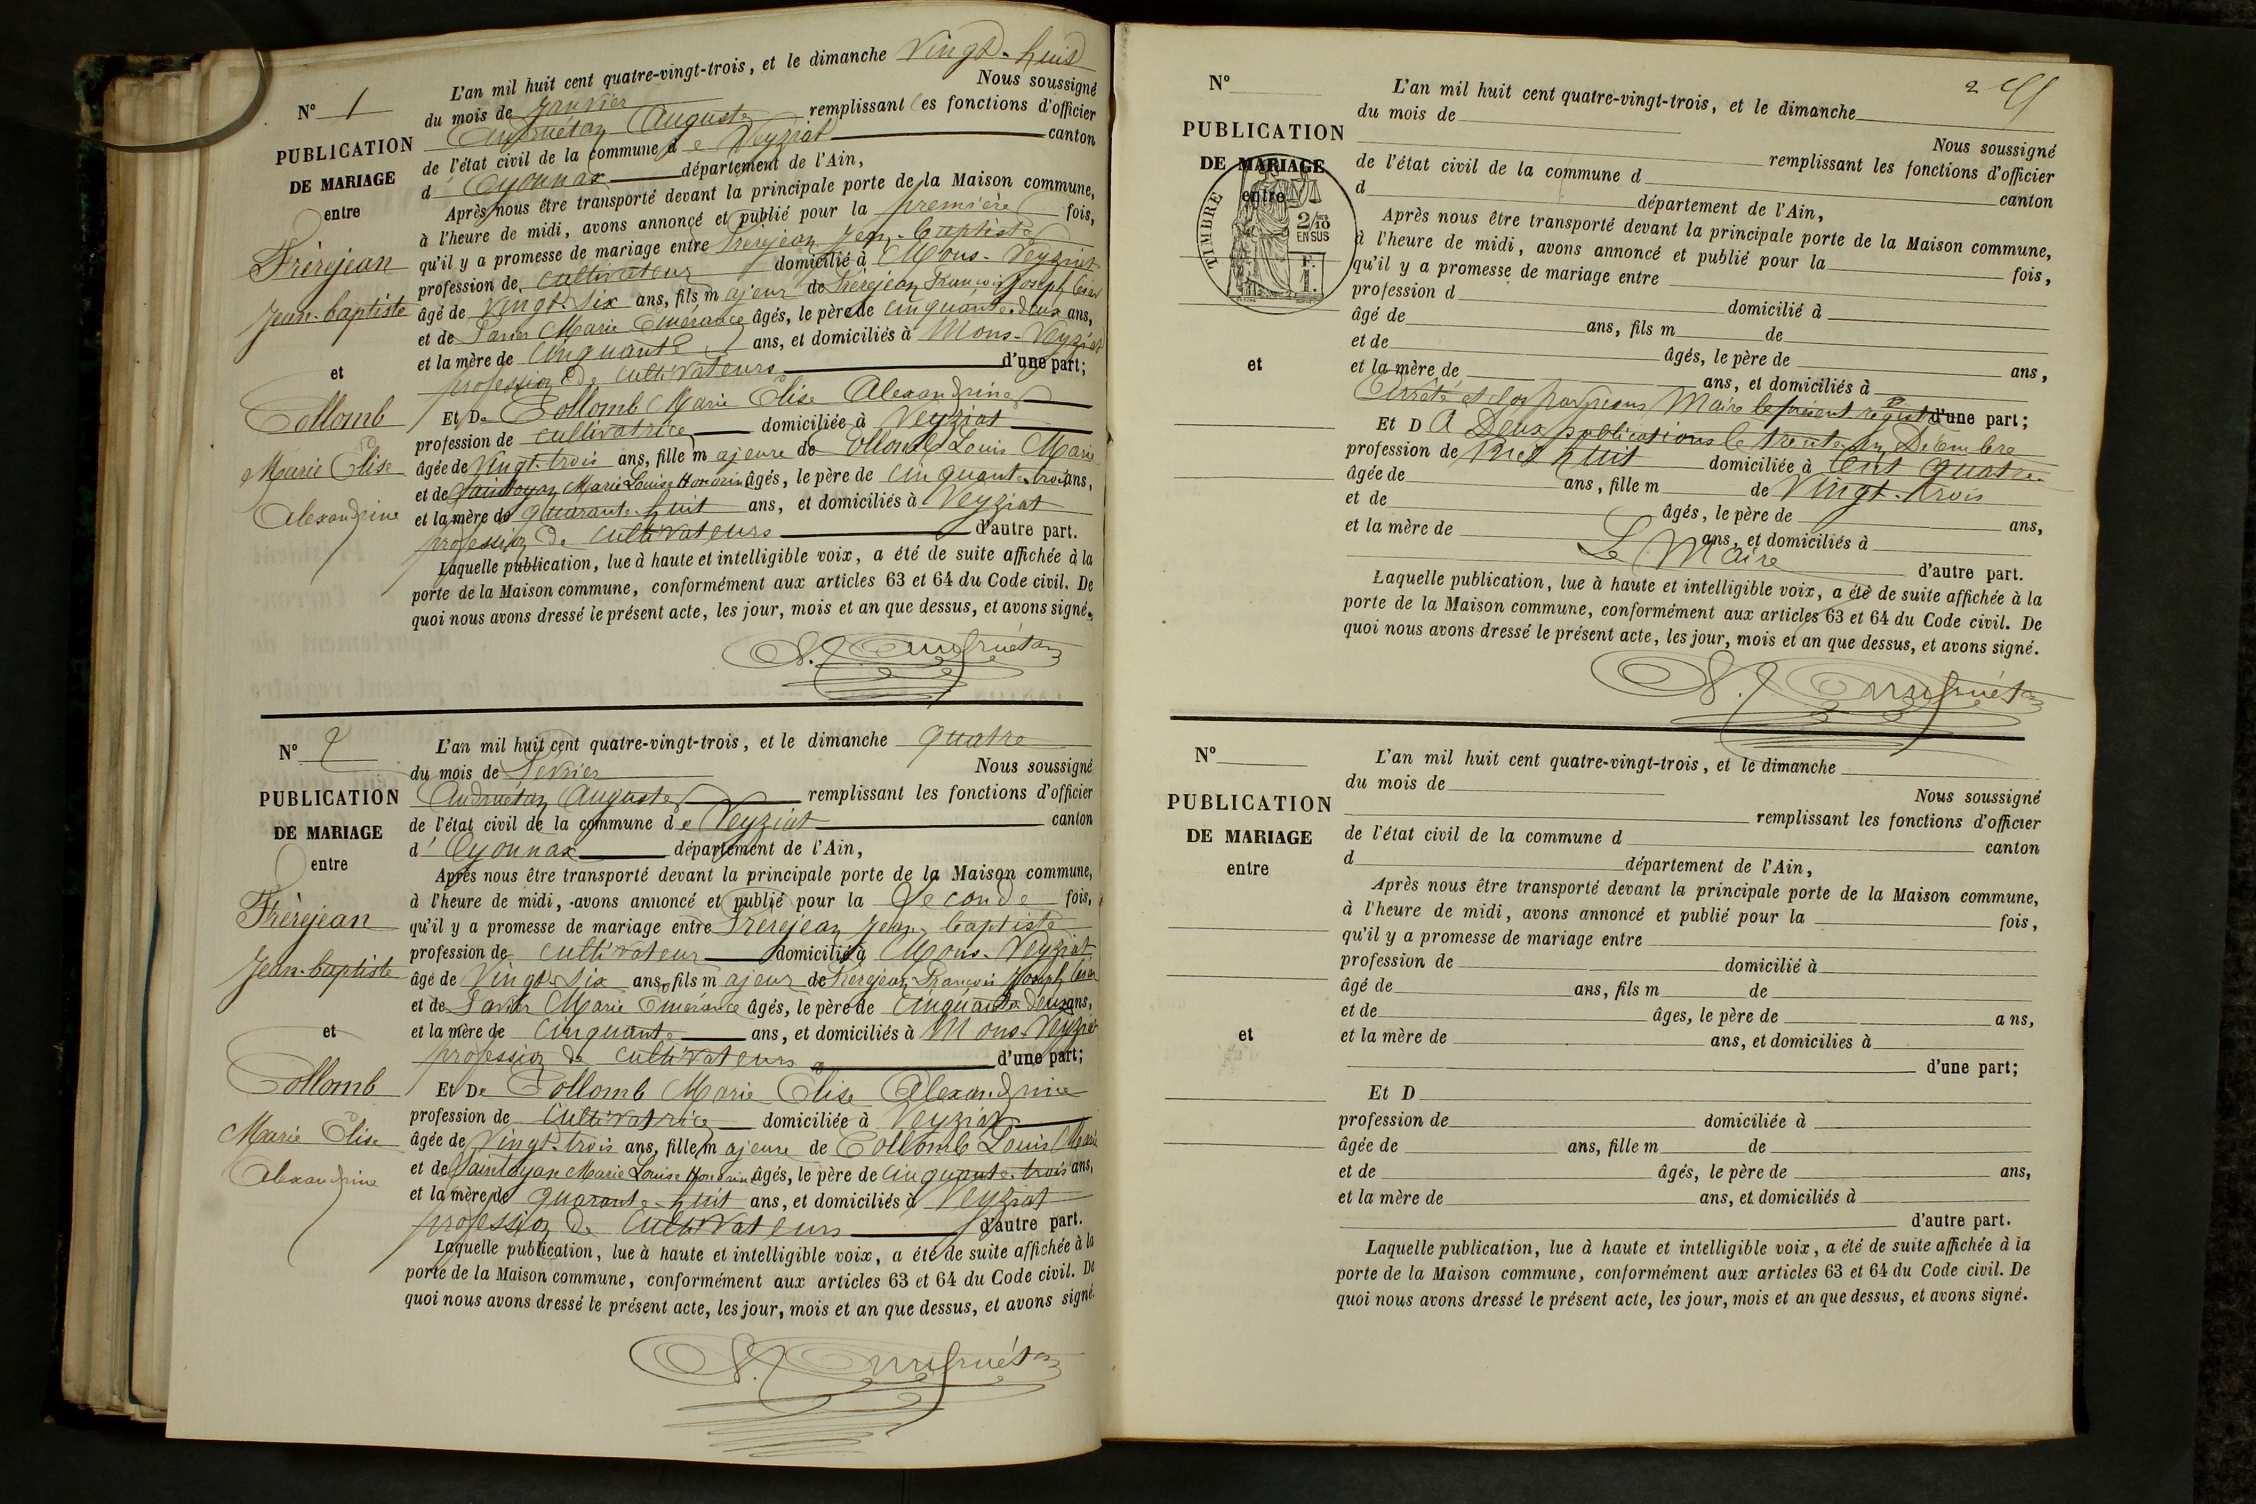 N° 1
PUBLICATION
DE MARIAGE
entre
Frèrejean
Jean-baptiste
et
Collomb
Marie Elise
Alexandrine
L'an mil huit cent quatre-vingt-trois, et le dimanche Vingt-huit
du mois de Janvier Nous soussigné
Andruétan Auguste remplissant les fonctions d'officier
de l'état civil de la commune de Veyziat canton
d'Oyonnax département de l'Ain,
Après nous être transporté devant la principale porte de la Maison commune,
à l'heure de midi, avons annoncé et publié pour la première fois,
qu'il y a promesse de mariage entre Frèrejean Jean-baptiste
profession de cultivateur domicilié à Mons-Veyziat
âgé de Vingt-six ans, fils majeur de Frèrejean François Joseph César
et de Marie Emérance âgés, le père de cinquante-deux ans,
et la mère de Cinquante ans, et domiciliés à Mons-Veyziat
profession de cultivateurs d'une part;
Et De Collomb Marie Elise Alexandrine
profession de cultivatrice domiciliée à Veyziat
âgée de Vingt-trois ans, fille majeure de Collomb Louis Marie
et de Saintoyan Marie Louise Honorine âgés, le père de cinquante-trois ans,
et la mère de quarante-huit ans, et domiciliés à Veyziat
profession de cultivateurs d'autre part.
Laquelle publication, lue à haute et intelligible voix, a été de suite affichée à la
porte de la Maison commune, conformément aux articles 63 et 64 du Code civil. De
quoi nous avons dressé le présent acte, les jour, mois et an que dessus, et avons signé.
Andruétan
N° 2
PUBLICATION
DE MARIAGE
entre
Frèrejean
Jean-baptiste
et
Collomb
Marie Elise
Alexandrine
L'an mil huit cent quatre-vingt-trois, et le dimanche quatre
du mois de Fevrier Nous soussigné
Andruétan Auguste remplissant les fonctions d'officier
de l'état civil de la commune de Veyziat canton
d'Oyonnax département de l'Ain,
Après nous être transporté devant la principale porte de la Maison commune,
à l'heure de midi, avons annoncé et publié pour la Seconde fois,
qu'il y a promesse de mariage entre Frèrejean Jean-baptiste
profession de cultivateur domicilié à Mons-Veyziat
âgé de Vingt-Six ans, fils majeur de Frèrejean François Joseph César
et de Marie Emérance âgés, le père de Cinquante deux ans,
et la mère de cinquante ans, et domiciliés à Mons-Veyziat
profession de cultivateurs d'une part;
Et De Collomb Marie Elise Alexandrine
profession de Cultivatrice domiciliée à Veyziat
âgée de Vingt-trois ans, fille majeure de Collomb Louis Marie
et de Saintoyan Marie Louise Honorine âgés, le père de cinquante-trois ans,
et la mère de quarante-huit ans, et domiciliés à Veyziat
profession de Cultivateurs d'autre part.
Laquelle publication, lue à haute et intelligible voix, a été de suite affichée à la
porte de la Maison commune, conformément aux articles 63 et 64 du Code civil. De
quoi nous avons dressé le présent acte, les jour, mois et an que dessus, et avons signé.
Andruétan
2
N°
PUBLICATION
DE MARIAGE
entre
TIMBRE
2/10
EN SUS
F.
1.
et
L'an mil huit cent quatre-vingt-trois, et le dimanche
du mois de Nous soussigné
remplissant les fonctions d'officier
de l'état civil de la commune d canton
d département de l'Ain,
Après nous être transporté devant la principale porte de la Maison commune,
à l'heure de midi, avons annoncé et publié pour la fois,
qu'il y a promesse de mariage entre
profession d domicilié à
âgé de ans, fils m de
et de âgés, le père de ans,
et la mère de ans, et domiciliés à
Arrêté et clos par nous Maire le présent registre d'une part;
Et D A Deux publications le trente un Décembre
profession de Mil huit domiciliée à Cent quatre-
âgée de ans, fille m de Vingt-trois
et de âgés, le père de ans,
et la mère de ans, et domiciliés à
Le Maire d'autre part.
Laquelle publication, lue à haute et intelligible voix, a été de suite affichée à la
porte de la Maison commune, conformément aux articles 63 et 64 du Code civil. De
quoi nous avons dressé le présent acte, les jour, mois et an que dessus, et avons signé.
Andruétan
N°
PUBLICATION
DE MARIAGE
entre
et
L'an mil huit cent quatre-vingt-trois, et le dimanche
du mois de Nous soussigné
remplissant les fonctions d'officier
de l'état civil de la commune d canton
d département de l'Ain,
Après nous être transporté devant la principale porte de la Maison commune,
à l'heure de midi, avons annoncé et publié pour la fois,
qu'il y a promesse de mariage entre
profession de domicilié à
âgé de ans, fils m de
et de âges, le père de ans,
et la mère de ans, et domicilies à
d'une part;
Et D
profession de domiciliée à
âgée de ans, fille m de
et de âgés, le père de ans,
et la mère de ans, et domiciliés à
d'autre part.
Laquelle publication, lue à haute et intelligible voix, a été de suite affichée à la
porte de la Maison commune, conformément aux articles 63 et 64 du Code civil. De
quoi nous avons dressé le présent acte, les jour, mois et an que dessus, et avons signé.